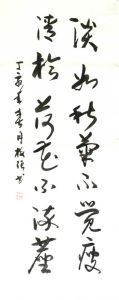 淡如秋菊不觉瘦
清於荷花不染塵
丁亥春月
书